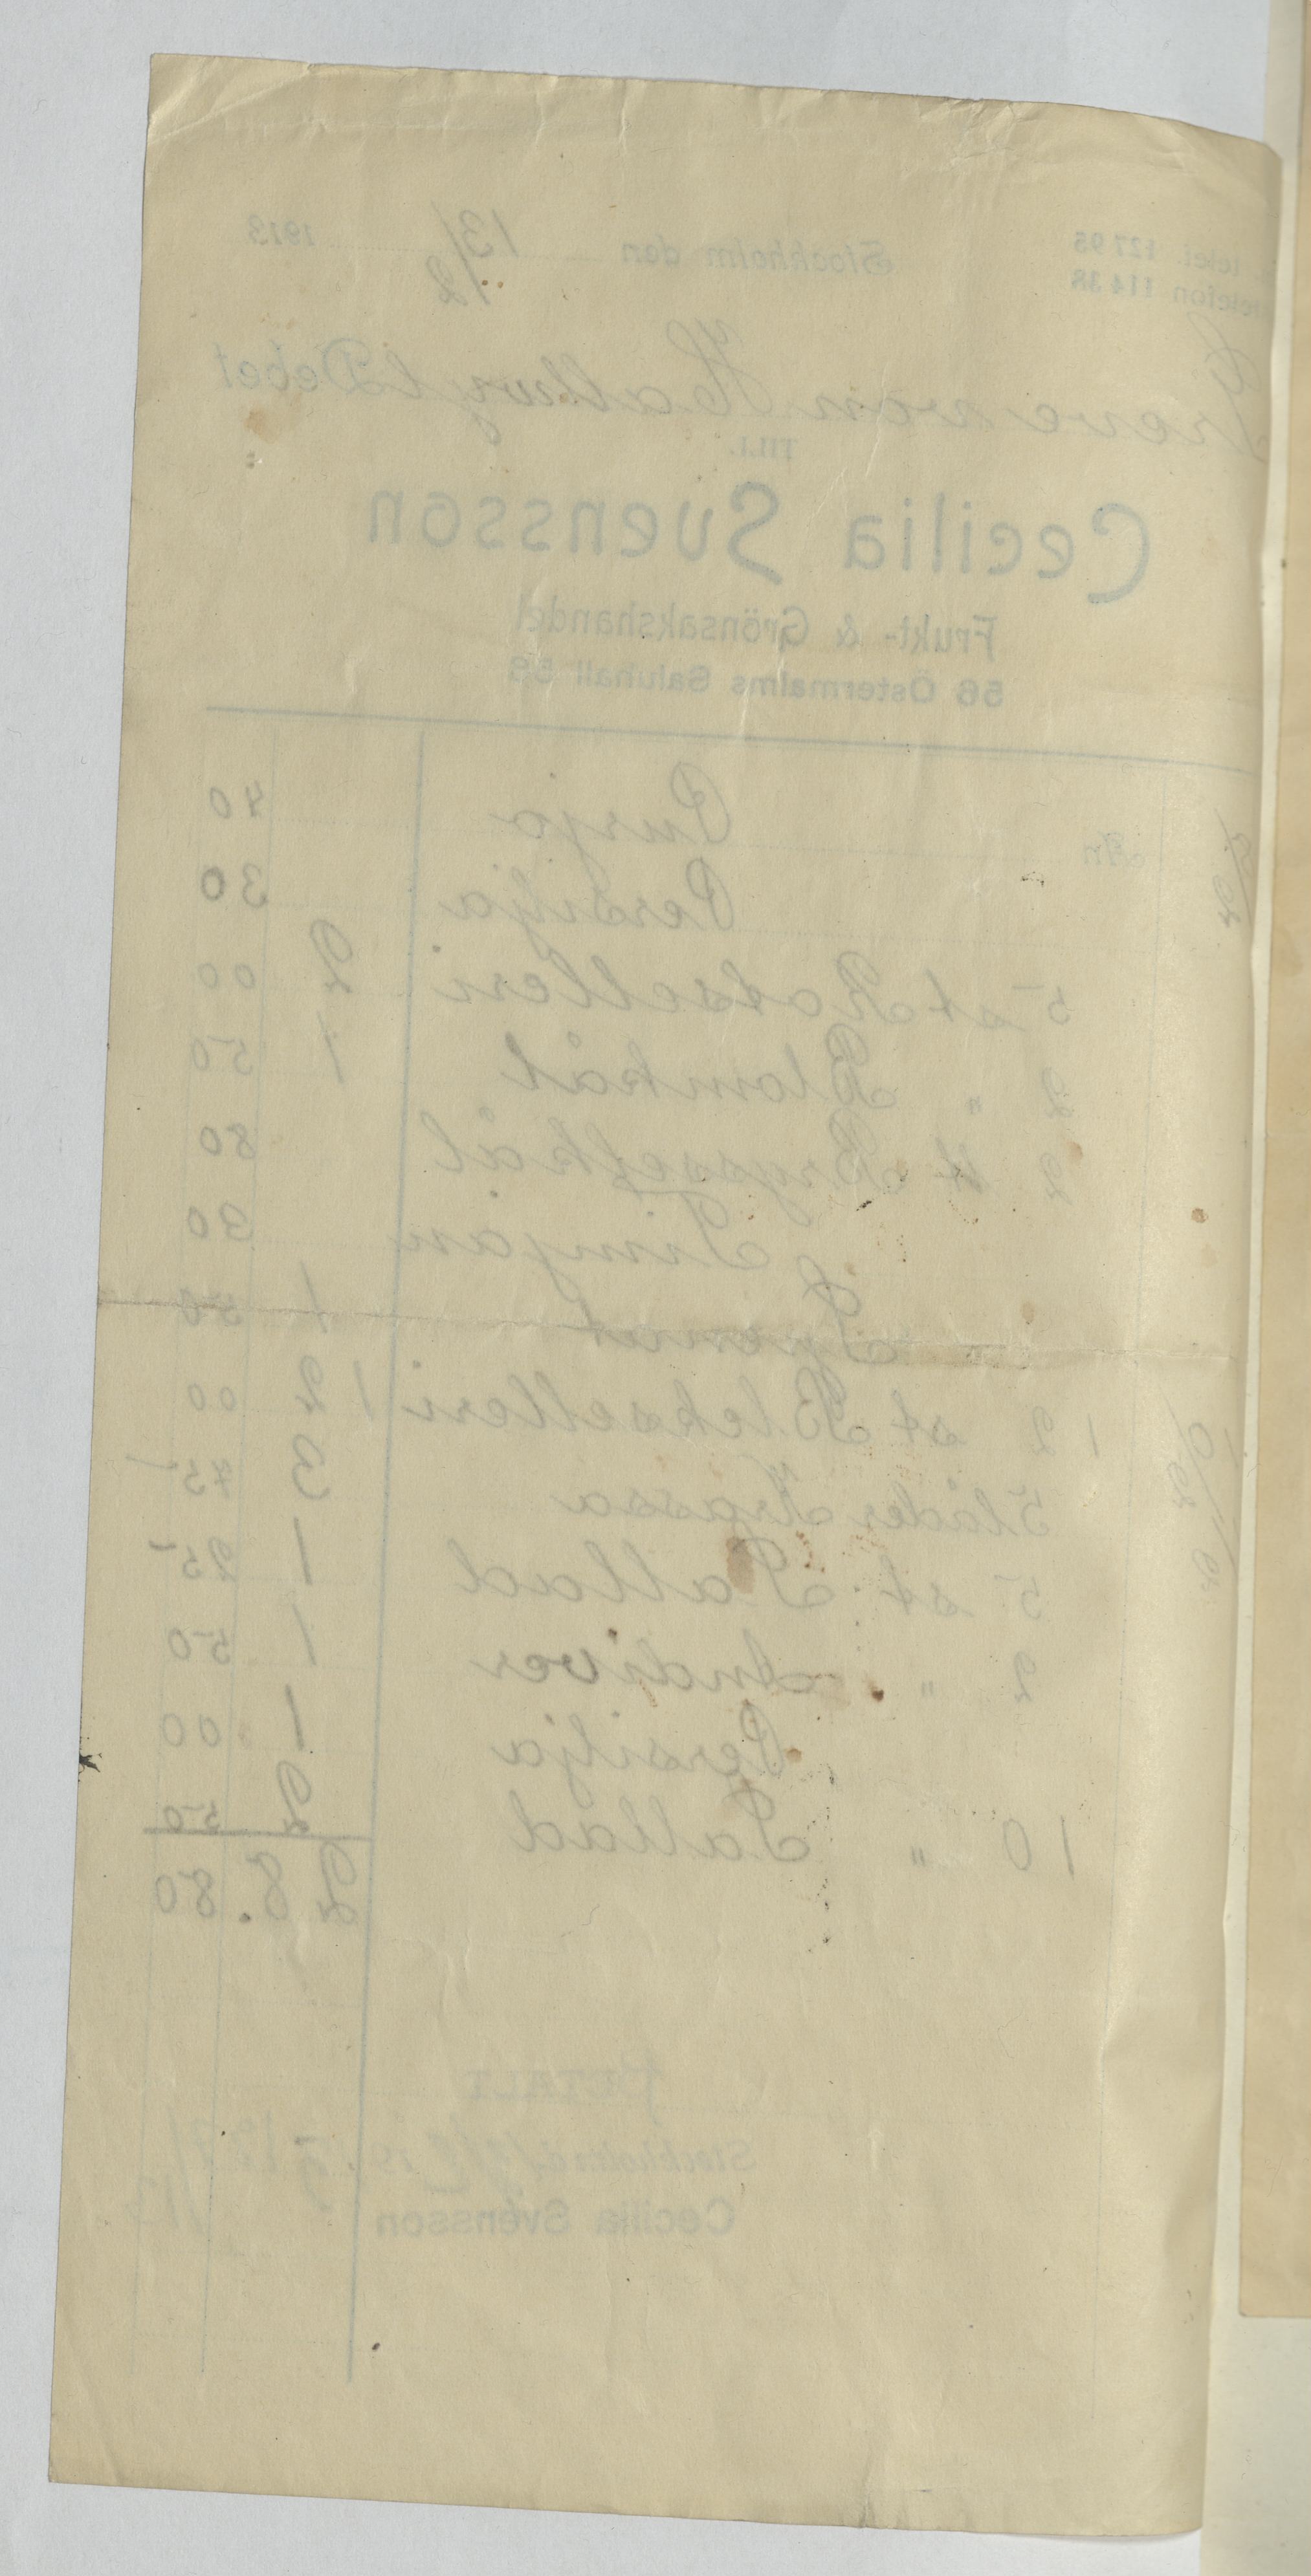 telef. 127 95
Stockholm den 13/12 1913
telefon 114 38
Greve von Hallwyl Debet
TILL
Cecilia Svensson
Frukt- & Grönsakshandel
56 Östermalms Saluhall 56
Purjo 40
Persilja 30
5 st Rotselleri 2 00
2 " Blomkål 1 50
2 Brysselkål 80
Timjan 30
Spenat 1 50
1 2 st Blekselleri 1 2 00
5 låder Krassa 3 75
5 st Sallad 1 25
2 " Andiver 1 50
Persilja 1 00
10 " Sallad 2 50
28.80
BETALT
Stockholm
Cecilia Svensson